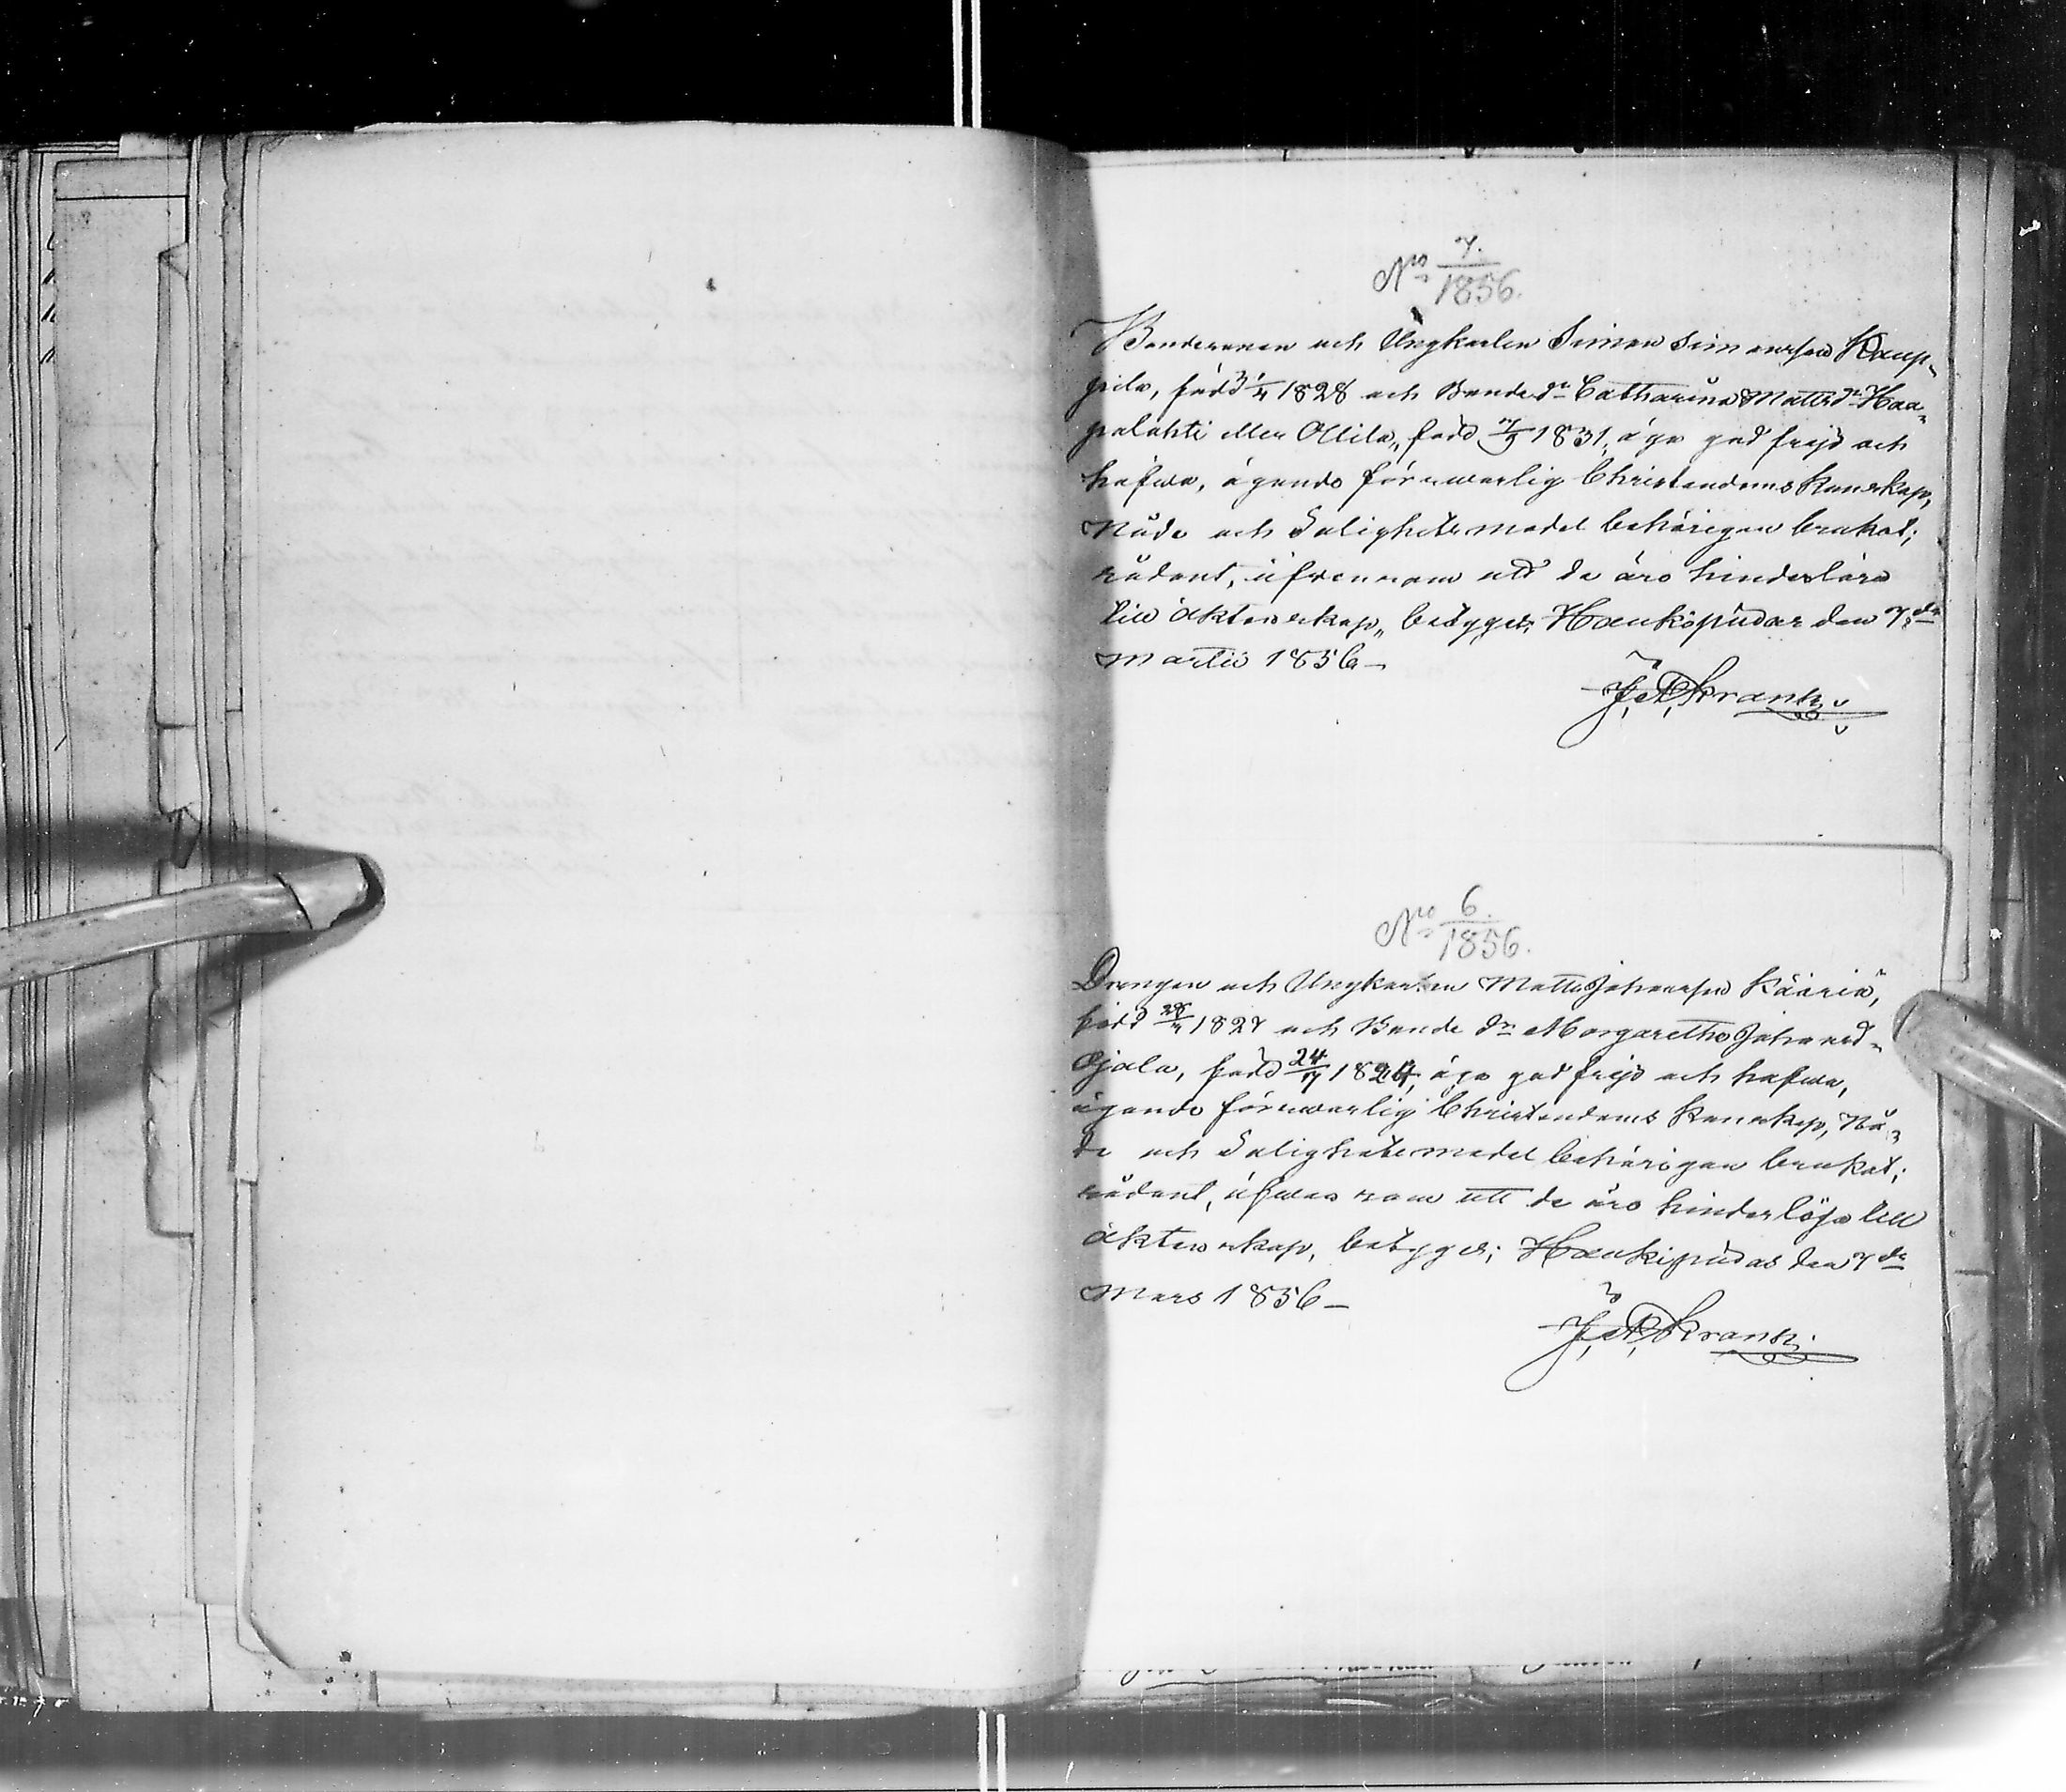 No 7./1856.
Bondesonen och Ungkarlen Simon Simonsson Kaup-
pila, född 3/4 1828 och Bonded:r Catharina Mattsd:r Haa-
palahti eller Ollila, född 7/9 1831, äga god frejd och
häfva, ägande försvarlig Christendoms kunskap,
Nåde och Salighets medel behörigen brukat;
sådant, äfvensom att de äro hinderlöse
till äktenskap, betygas; Haukipudas den 7:de
Martii 1856 –
J. A. Frantz
No 6./1856.
Drengen och Ungkarlen Matts Johansson Kääriä,
född 28/4 1827 och Bonde d:r Margaretha Johansd:
Ojala, född 24/7 1824, äga god frejd och häfva,
ägande försvarlig Christendoms kunskap, Nå-
de och Salighets medel behörigen brukat;
sådant, äfven som att de äro hinderlöse till
äktenskap, betygas; Haukipudas den 7de
Mars 1856 –
J. A. Frantz